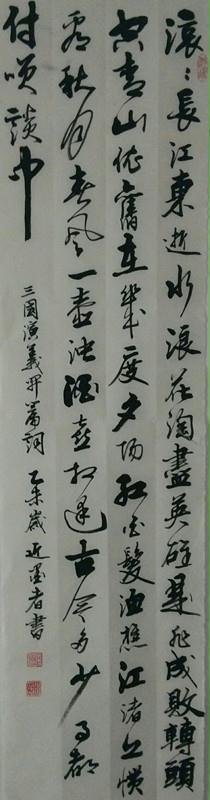 滾〻長江東逝水浪花淘盡英雄是非成敗轉頭
空青山依舊在幾度夕陽紅白髮漁樵江渚上慣
看秋月春風一壺濁酒喜相逢古今多少事都
付笑談中
三國演義開篇詞 乙未歲 近墨者書